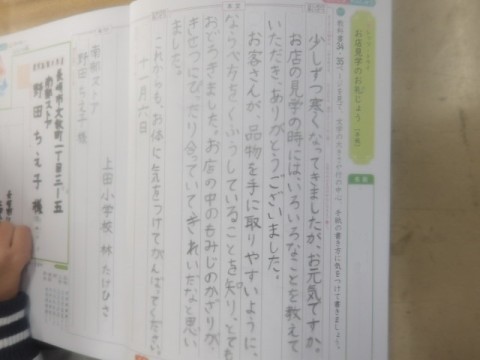 お店見学のお礼じょう
少しずつ寒くなってきましたが、お元気ですか。
お店の見学の時には、いろいろなことを教えて
いただき、ありがとうございました。
お客さんが、品物を手に取りやすいように、
ならべ方をくふうしていることを知り、とても
おどろきました。お店の中のもみじのかざりが、
きせつにぴったり合っていて、きれいだなと思い
ました。
これからも、お体に気をつけてがんばってください。
十一月六日
上田小学校 林 たけひさ
南部ストア
野田 ちえ子 様
長崎市大秋町一丁目三ー五
南部ストア
野田 ちえ子 様